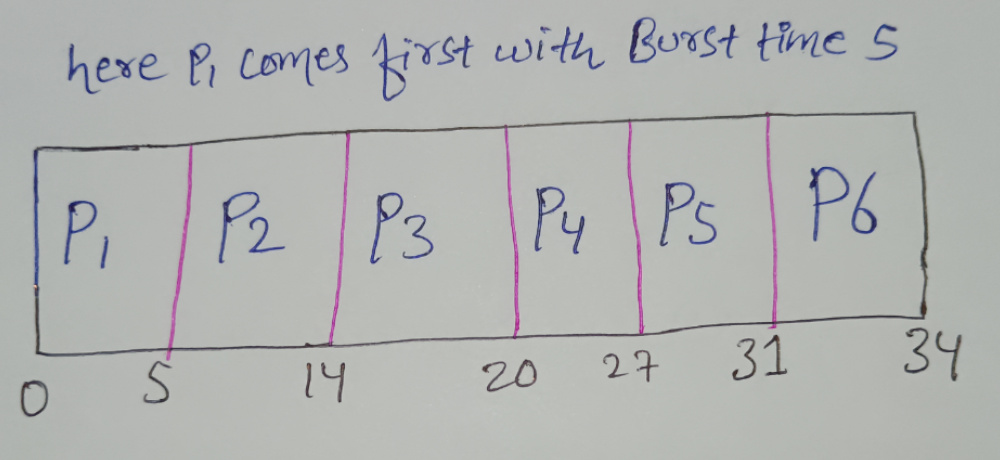 here P1 comes first with Burst time 5
P1 P2 P3 P4 P5 P6
0 5 14 20 27 31 34